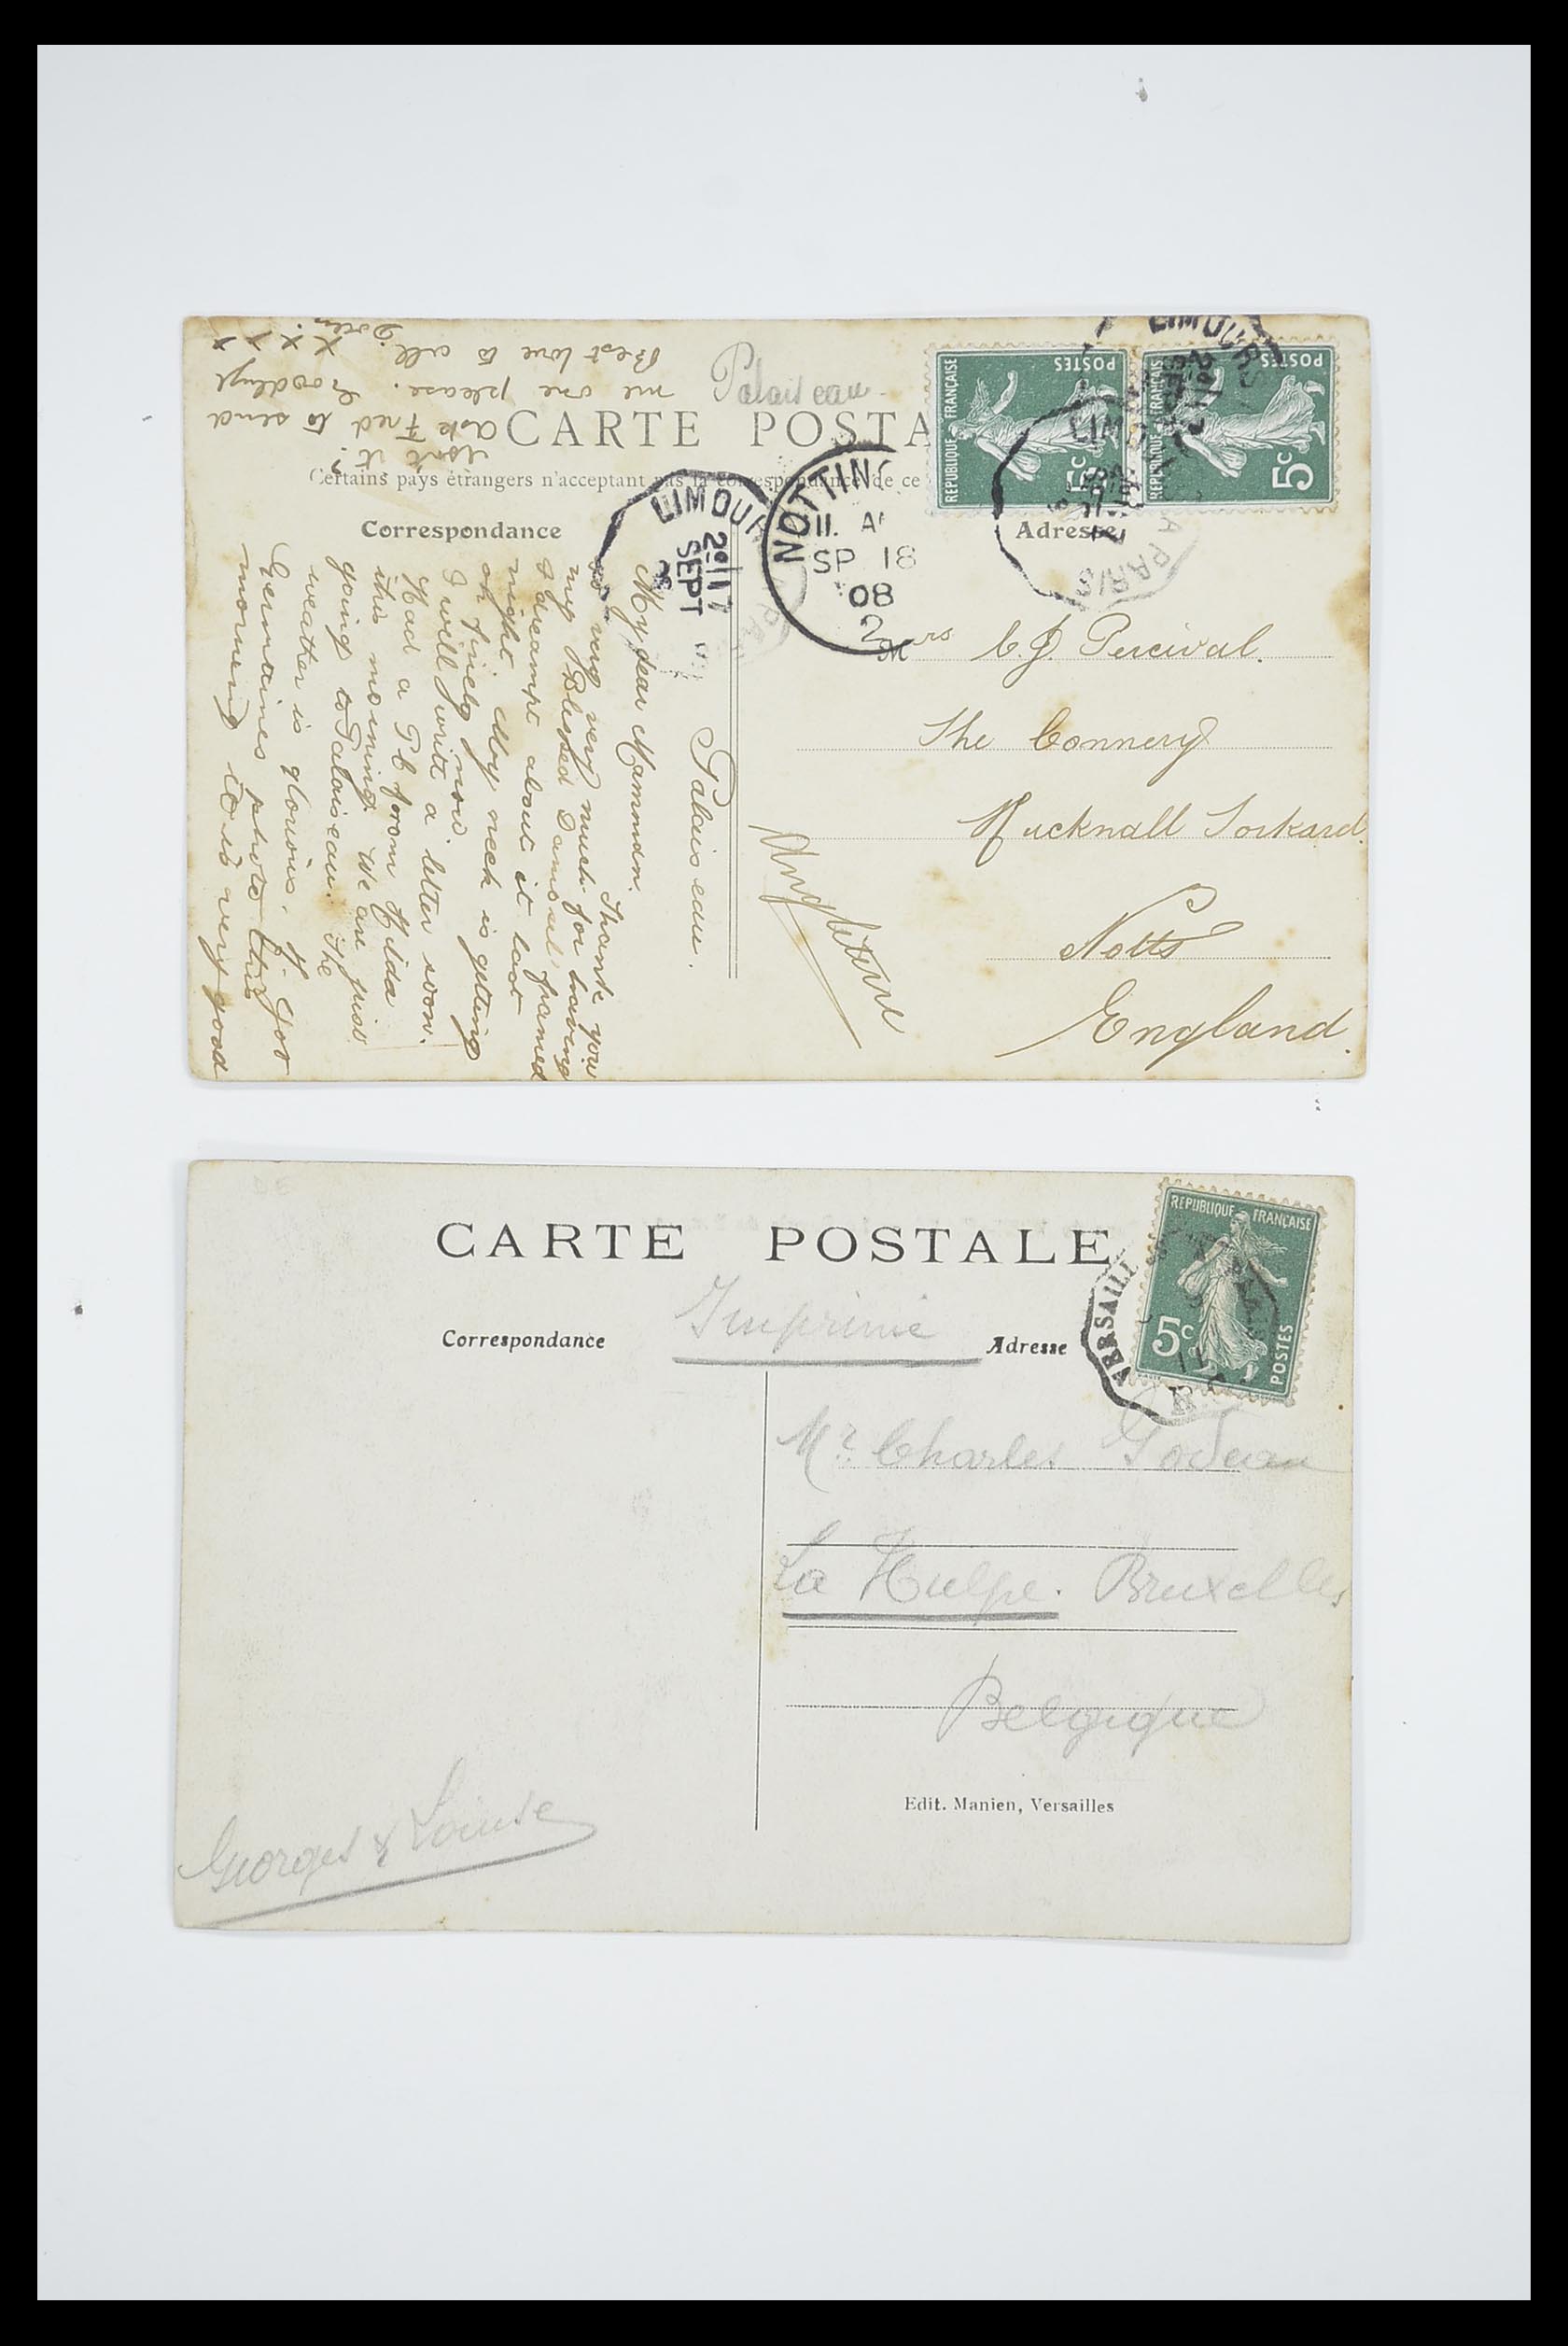 Palaiseau.
CARTE POSTA
Certains pays étrangers n'acceptant pas la correspondance de ce
Correspondance
Adresse
REPUBLIQUE FRANÇAISE
POSTES
5c
REPUBLIQUE FRANÇAISE
POSTES
5c
LIMOURS
LIMOUR
20 17
SEPT
NOTTING
11. A
SP 18
08
2
A PARIS
Mrs C. J. Percival.
The Connery
Hucknall Torkard.
Notts
England.
Angleterre
Palaiseau.
My dear Mamman.
Thank you
so very very much for having
my Blessed Damosel framed
I dreampt about it last
night. My neck is getting
on finely now.
I will write a letter soon.
Had a P.C from Hilda
this morning. We are just
going to Palaiseau. The
weather is glorious. I got
Germaines photo this
morning it is very good
isn't it?
Ask Fred to send
me one please. Goodbye
Best love to all.
x x x x
CARTE POSTALE
Correspondance
Imprimé
Adresse
REPUBLIQUE FRANÇAISE
5c
POSTES
VERSAILL
Mr. Charles Godeau
La Hulpe. Bruxelles
Belgique
Edit. Manien, Versailles
Georges & Louise